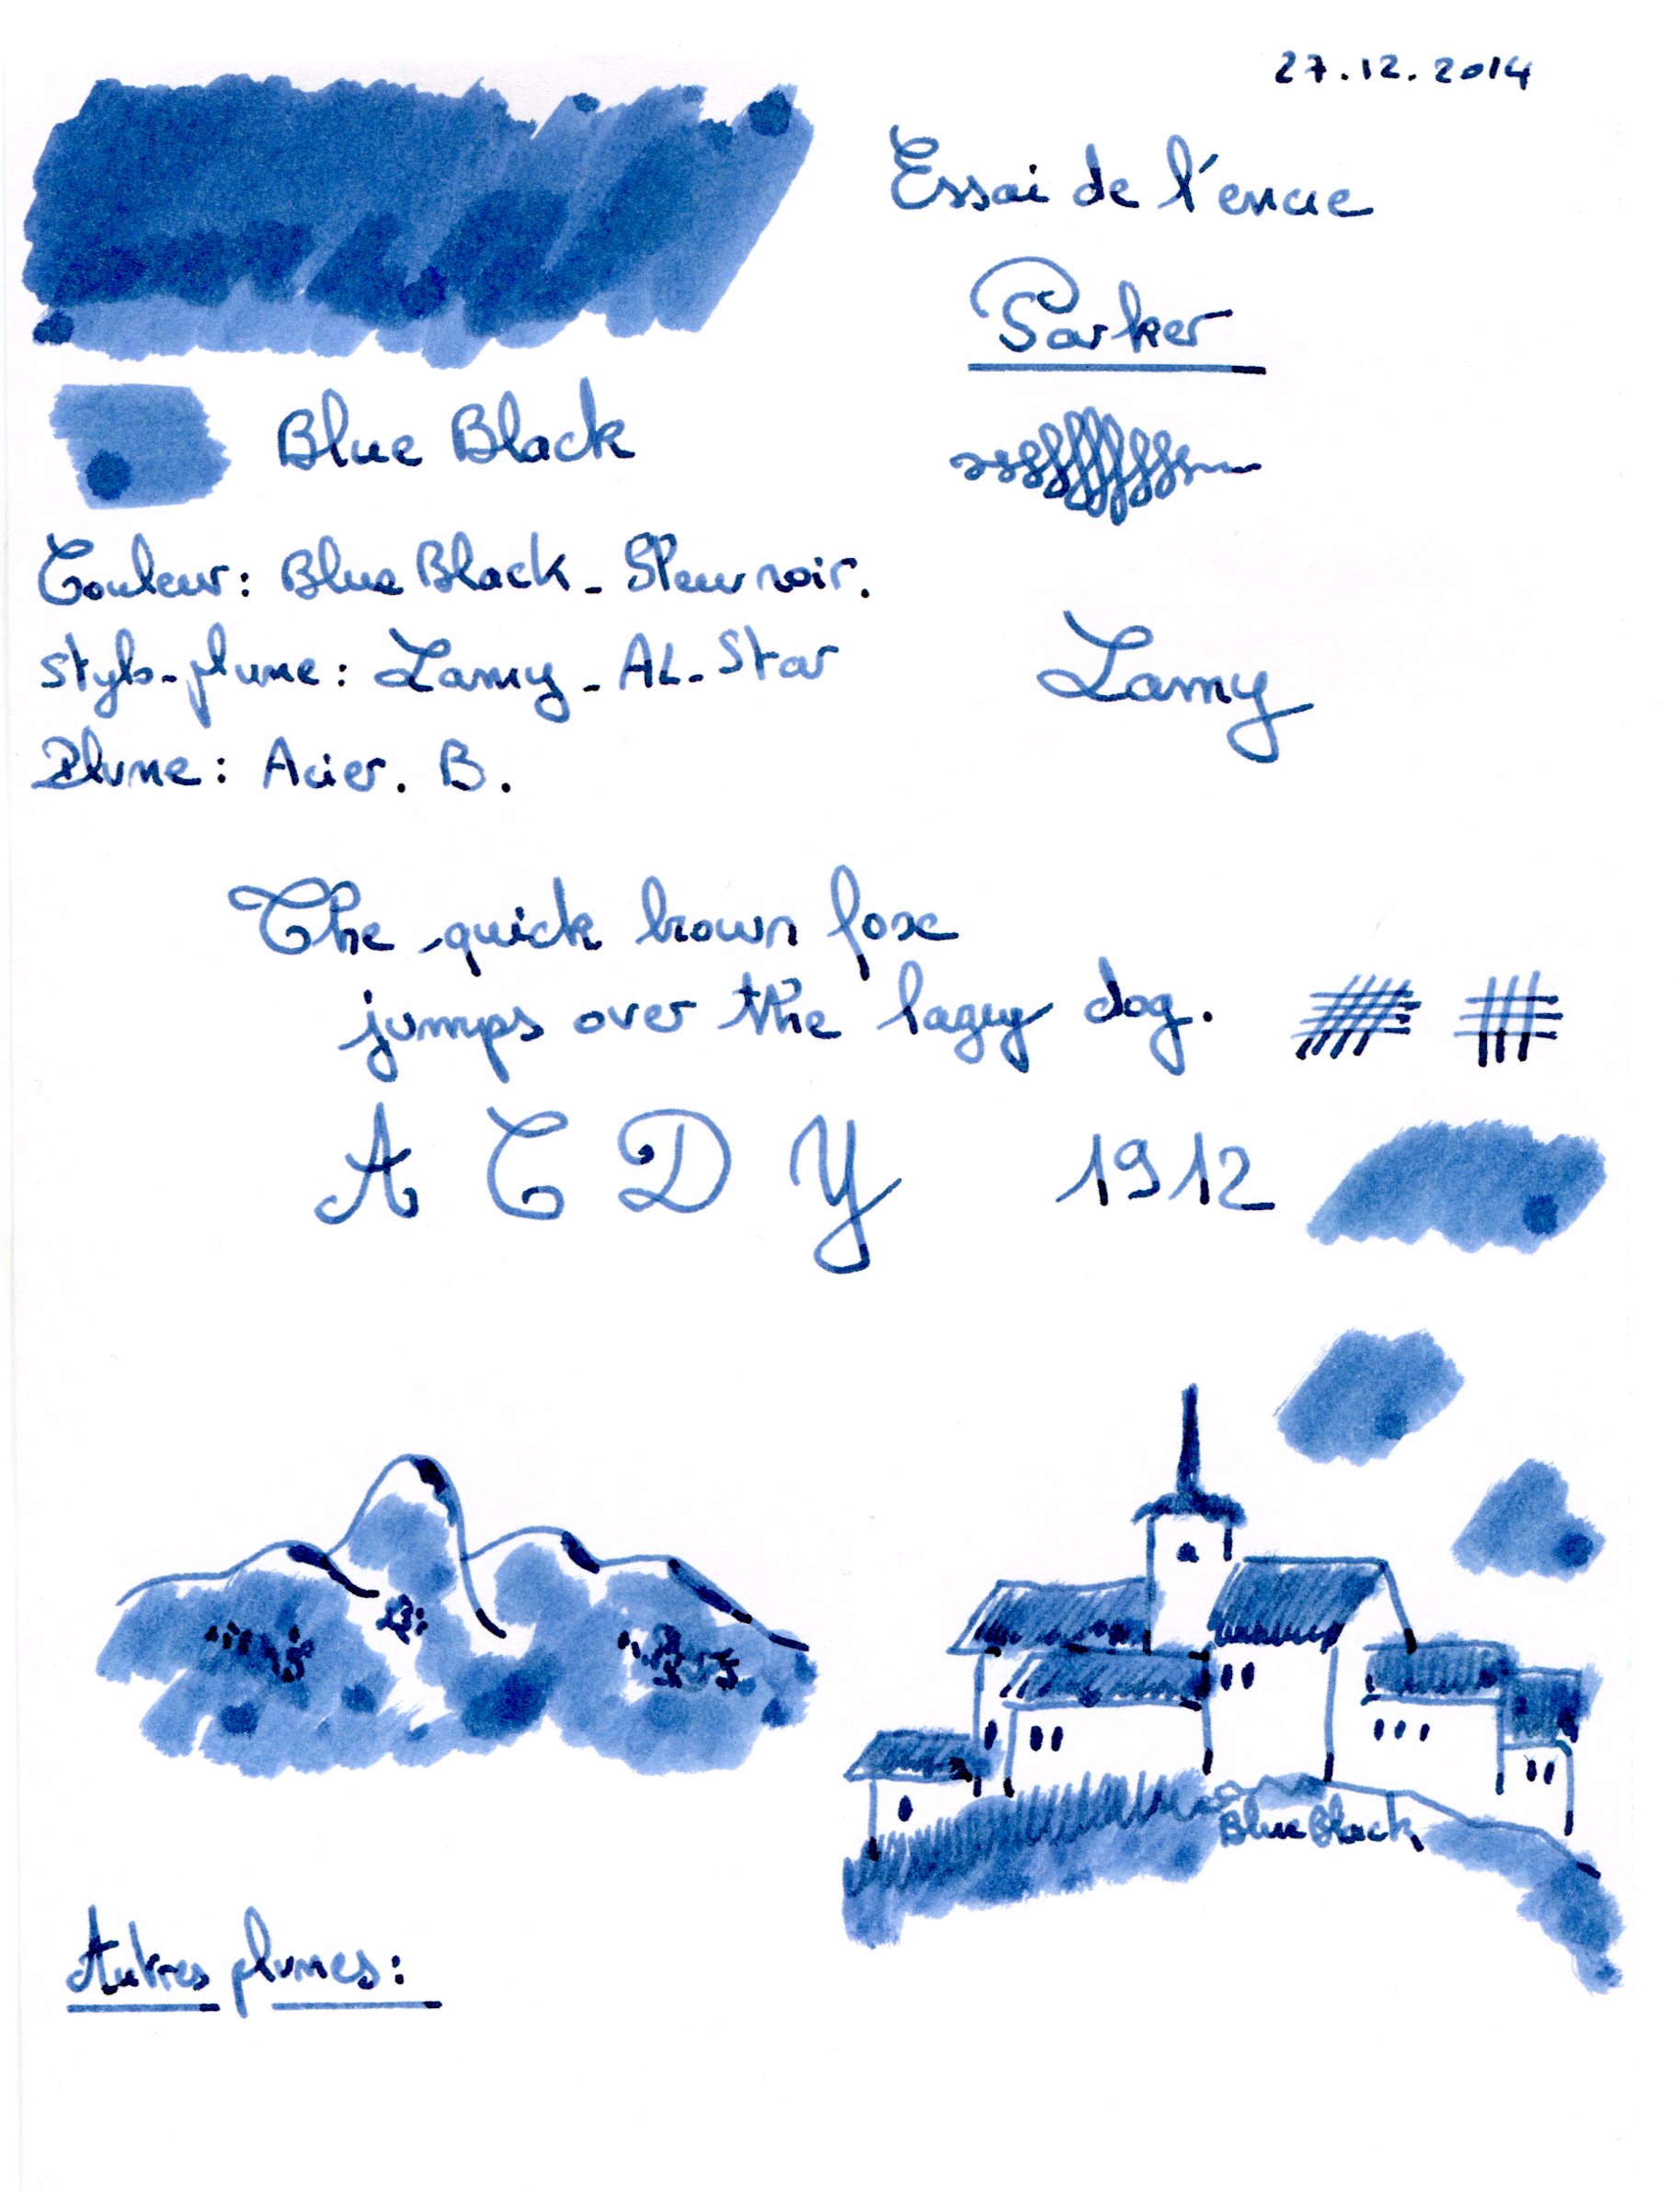 27.12.2014
Essai de l'encre
Parker
Blue Black
Couleur: Blue Black_ Bleu noir.
stylo-plume: Lamy_AL-Star
Lamy
Plume: Acier. B.
The quick brown fox
jumps over the lazy dog.
A C D Y 1912
Blue Black
Autres plumes: